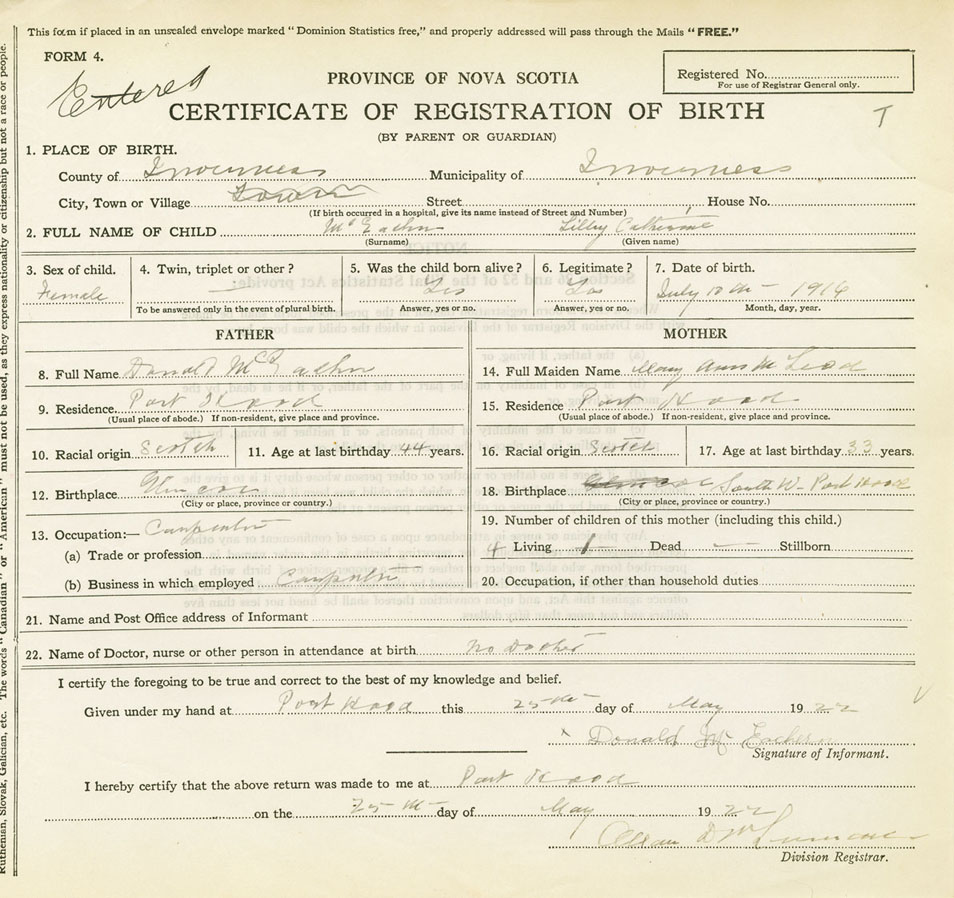 This form if placed in an unsealed envelope marked "Dominion Statistics free," and properly addressed will pass through the Mails "FREE."
FORM 4.
Entered
PROVINCE OF NOVA SCOTIA
Registered No.
For use of Registrar General only.
CERTIFICATE OF REGISTRATION OF BIRTH
T
(BY PARENT OR GUARDIAN)
1. PLACE OF BIRTH.
County of Inverness Municipality of Inverness
City, Town or Village Street House No.
(If birth occurred in a hospital, give its name instead of Street and Number)
2. FULL NAME OF CHILD McEachn Lilley Catherine
(Surname) (Given name)
3. Sex of child. 4. Twin, triplet or other? 5. Was the child born alive? 6. Legitimate? 7. Date of birth.
Female — Yes Yes July 10th — 1916
To be answered only in the event of plural birth. Answer, yes or no. Answer, yes or no. Month, day, year.
FATHER MOTHER
8. Full Name Donald McEachn 14. Full Maiden Name Mary Ann McLeod
9. Residence Port Hood 15. Residence Port Hood
(Usual place of abode.) If non-resident, give place and province. (Usual place of abode.) If non-resident, give place and province.
10. Racial origin Scotch 11. Age at last birthday 44 years. 16. Racial origin Scotch 17. Age at last birthday 33 years.
12. Birthplace Glencoe 18. Birthplace Glencoe South W- Port Hood
(City or place, province or country.) (City or place, province or country.)
13. Occupation:— Carpenter 19. Number of children of this mother (including this child.)
(a) Trade or profession 4 Living 1 Dead — Stillborn
(b) Business in which employed Carpenter 20. Occupation, if other than household duties
21. Name and Post Office address of Informant
22. Name of Doctor, nurse or other person in attendance at birth no Docter
I certify the foregoing to be true and correct to the best of my knowledge and belief.
Given under my hand at Port Hood this 25th day of May 1922
Donald McEachern
Signature of Informant.
I hereby certify that the above return was made to me at Port Hood
on the 25th day of May 1922
Allan D
Division Registrar.
Ruthenian, Slovak, Galician, etc. The words "Canadian" or "American" must not be used, as they express nationality or citizenship but not a race or people.